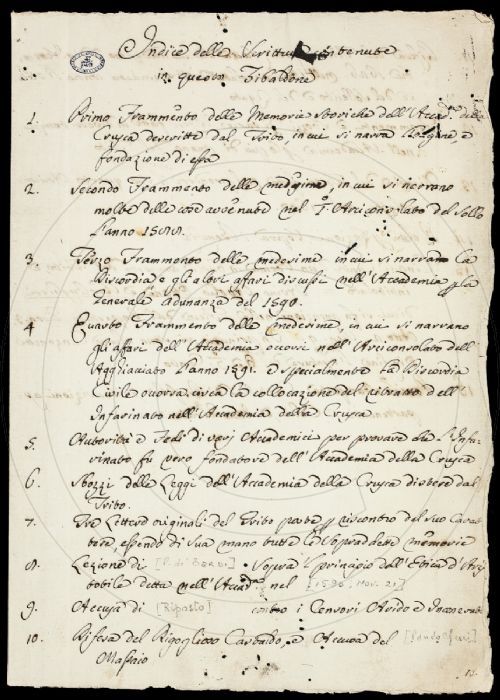 Indice delle Scritture contenute
in questo Zibaldone
1. Primo Frammento delle Memorie Storiche dell'Accad.ᵃ della
Crusca descritte dal Trito, in cui si narra l'origine, e
fondazione di essa
2. Secondo Frammento delle medesime, in cui si
molte delle cose avvenute nel Arciconsolato del Sollo
l'anno 1588.
3. Terzo Frammento delle medesime in cui si narrano la
Discordia e gli altri affari discussi nell'Accademia
Generale Adunanza del 1590.
4 Quarto Frammento delle medesime, in cui si narrano
gli affari dell'Accademia occorsi nell'Arciconsolato dell'
Agghiacciato l'anno 1591. e specialmente la Discordia
Civile occorsa circa la collocazione del ritratto dell'
Infarinato nell'Accademia della Crusca
5. Autorità e Fedi di varj Accademici per provare che l'Infa-
rinato fu vero fondatore dell'Accademia della Crusca
6. Sbozzi delle Leggi dell'Accademia della Crusca distese dal
Trito.
7. Tre Lettere originali del Trito poste riscontro del suo Carat-
tere, essendo di sua mano tutte le sopraddette memorie
8. Lezione di sopra il principio dell'Etica d'Aris
totile detta nell'Accad.ᵃ nel
9. Accusa di [Riposto] contro i Censori Arido e
10. Difesa del Rigoglioso e Accusa del
Massaio